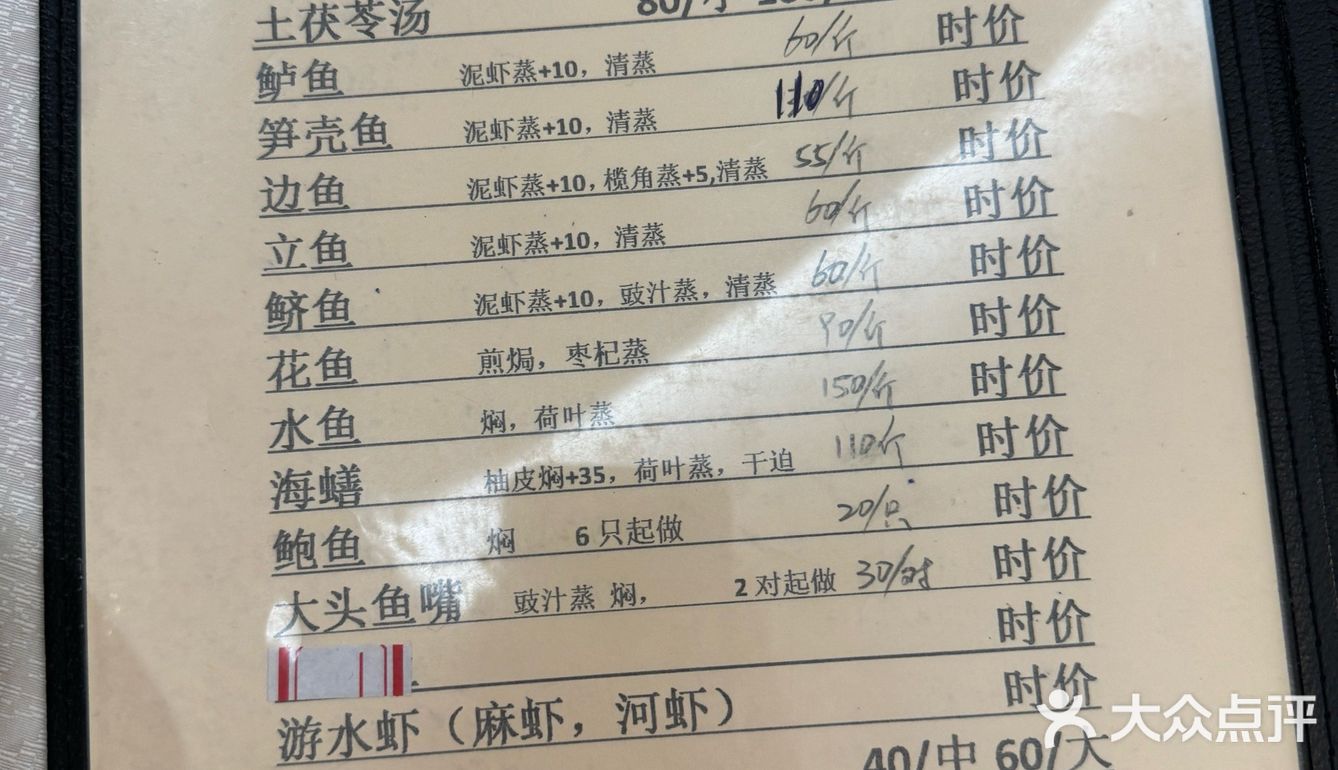 土茯苓汤 80/
鲈鱼 泥虾蒸+10，清蒸 60/斤 时价
笋壳鱼 泥虾蒸+10，清蒸 110/斤 时价
边鱼 泥虾蒸+10，榄角蒸+5,清蒸 55/斤 时价
立鱼 泥虾蒸+10，清蒸 60/斤 时价
鲚鱼 泥虾蒸+10，豉汁蒸，清蒸 60/斤 时价
花鱼 煎焗，枣杞蒸 90/斤 时价
水鱼 焖，荷叶蒸 150/斤 时价
海鳝 柚皮焖+35，荷叶蒸，干迫 110/斤 时价
鲍鱼 焖 6只起做 20/只 时价
大头鱼嘴 豉汁蒸 焖， 2对起做 30/对 时价
时价
游水虾（麻虾，河虾） 时价
40/中 60/大
大众点评